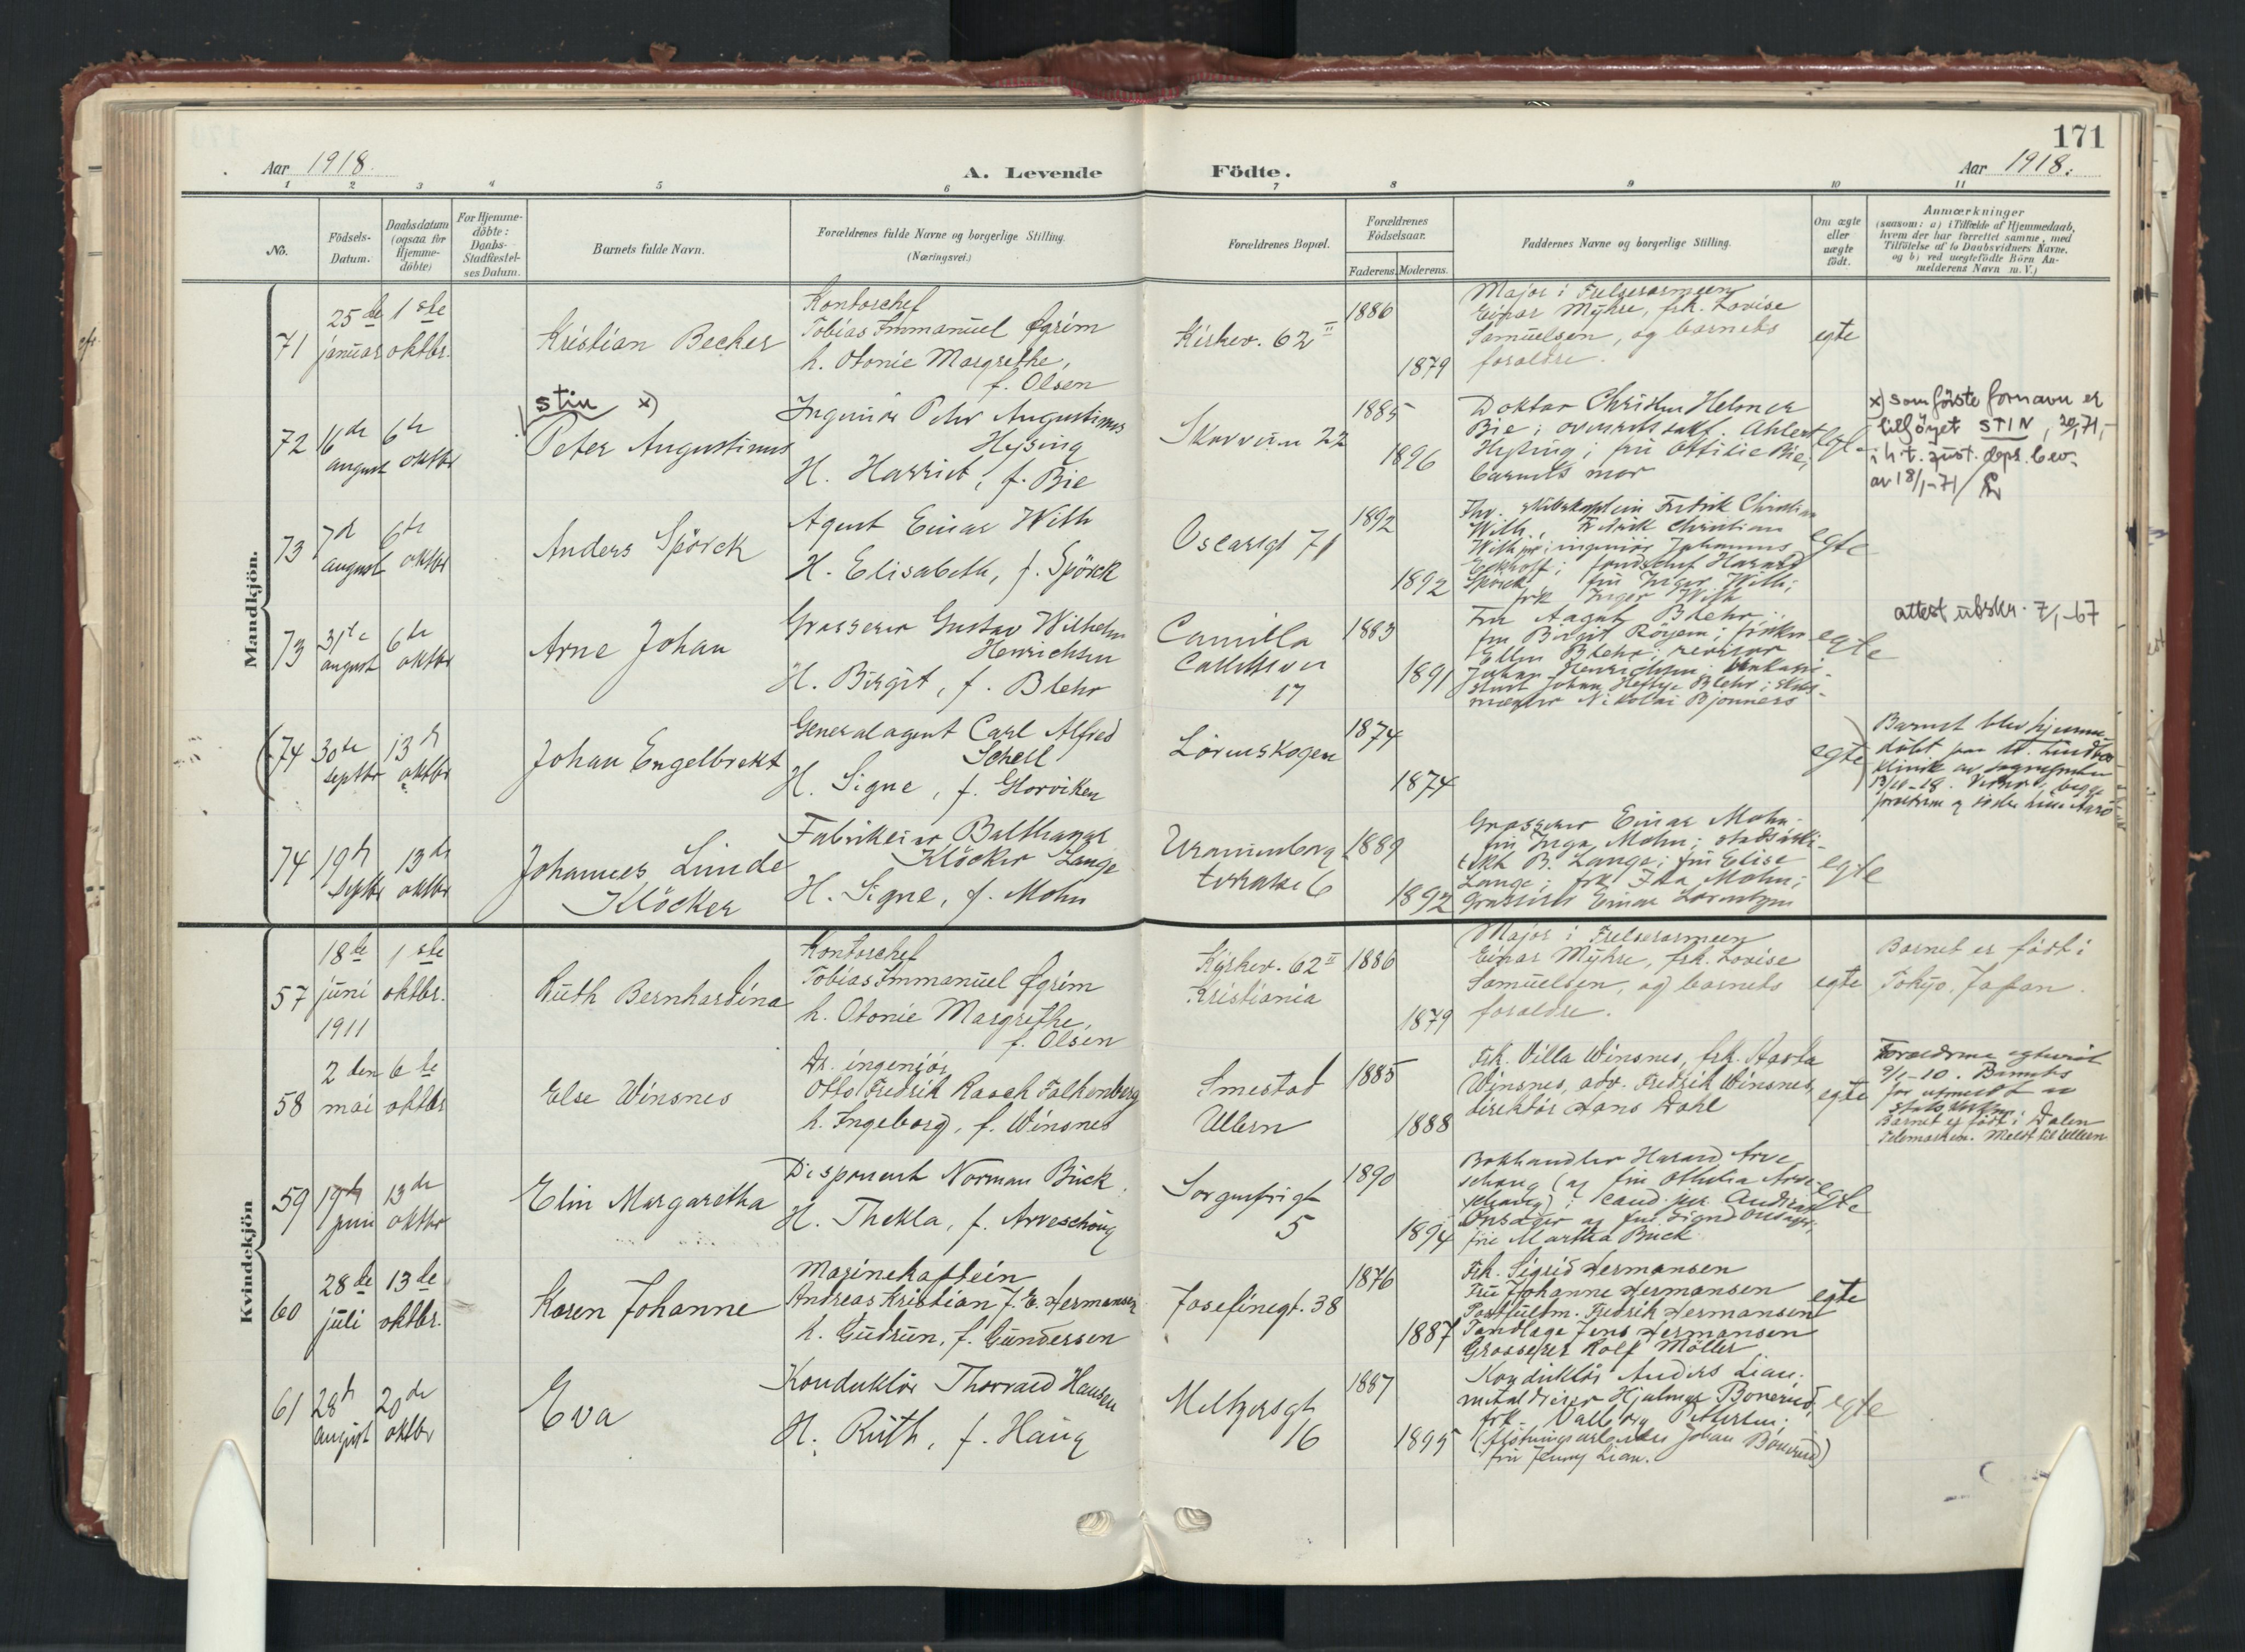 171
Aar 1918.
A. Levende Födte.
Aar 1918.
1 2 3 4 5 6 7 8 9 10 11
No.
Födsels-
Datum.
Daabsdatum
(ogsaa for
Hjemme-
döbte)
For Hjemme-
döbte:
Daabs-
Stadfæstel-
ses Datum.
Barnets fulde Navn.
Forældrenes fulde Navne og borgerlige Stilling.
(Næringsvei.)
Forældrenes Bopæl.
Forældrenes
Födselsaar.
Faderens. Moderens.
Faddernes Navne og borgerlige Stilling.
Om ægte
eller
uægte
födt.
Anmærkninger
(saasom: a) i Tilfælde af Hjemmedaab,
hvem der har forrettet samme, med
Tilföielse af to Daabsvidners Navne,
og b) ved uægtefödte Börn An-
melderens Navn m. V.)
Mandkjön.
71
25de januar
1ste oktbr.
Kristian Becker
Kontorchef
Tobias Immanuel Øgrim
h. Otonie Margrethe,
f. Olsen
Kirkev. 62 II
1886
1879
Major i Frelserarmeen
Einar Myhre, frk. Lovise
Samuelsen, og barnets
foraldre.
egte
72
16de august
6te oktbr
stin x)
Peter Augustinus
Ingeniör Peter Augustinus
Hysing
H. Harriet, f. Bie
Skovvein 22
1885
1896
Doktor Christen Heiner
Bie; overretssakf. Ahlert
Hysing; fru Ottilie Bie;
barnets mor
egte
x) som förste fornavn er
tilföyet STIN, 20/1-71,
i h.t. just. dept. bev.
av 18/1-71
73
7de august
6te oktbr
Anders Spörck
Agent Einar With
H. Elisabeth, f. Spörck
Oscarsgt 71
1892
1892
Thv. skibskaptein Fredrik Christian
With, Fredrik Christian
With jnr; ingeniör Johannes
Eckhoff; fondschef Harald
Spörck; fru Inger With;
frk Inger With
egte
73
31te august
6te oktbr
Arne Johan
Grosserer Gustav Wilhelm
Henrichsen
H. Birgit, f. Blehr
Camilla
Collettsvei
17
1883
1891
Fru Aagot Blehr;
fru Birgit Röyem; fröken
Ellen Blehr; revisor
Johan Henrichsen;
Johan Heftye Blehr; skibs-
megler Nikolai Bjonness
egte
attest utskr. 7/1-67
74
30te septbr
13de oktbr
Johan Engelbrekt
Generalagent Carl Alfred
Schell
H. Signe, f. Horviken
Lörenskogen
1874
1874
egte
Barnet blev hjemme-
döbt paa
klinik av sognepresten
13/10-18.
74
19de septbr
13de oktbr
Johannes Linde
Klöcker
Fabrikeier Balthazar
Klöcker Lange
H. Signe, f. Mohn
Uranienborg
terrasse 6
1889
1892
Grosserer Einar Mohn
fru Inga Mohn; stadsarki-
tekt B. Lange; fru Elise
Lange; frk. Ida Mohn;
Grosserer Einar Lorentzen
egte
Kvindekjön
57
18de juni 1911
1ste oktbr.
Ruth Bernhardina
Kontorchef
Tobias Immanuel Øgrim
h. Otonie Margrethe,
f. Olsen
Kirkev. 62 II
Kristiania
1886
1879
Major i Frelserarmeen
Einar Myhre, frk. Lovise
Samuelsen, og barnets
foraldre.
egte
Barnet er födt i
Tokyo, Japan.
58
2den mai
6te oktbr
Else Winsnes
Dr. ingeniör
Otto Fredrik Raach Falkenberg
h. Ingeborg, f. Winsnes
Smestad
Ullern
1885
1888
Frk. Villa Winsnes, frk. Aasta
Winsnes, adv. Fredrik Winsnes,
direktör Hans Dahl
egte
Foraeldrene egteviet
9/1-10. Barnets
far utmeldt av
statskirken
Barnet er födt i Dalen
Telemarken. Meldt til Ullern
59
19de juni
13de oktbr
Elin Margaretha
Disponent Norman Buck
H. Thekla, f. Arveschoug
Sorgenfrigt
5
1890
1894
Bokhandler Harald Arve-
schoug (og fru Othilia Arve-
schoug); cand. jur. Andreas
Onsager og fru Signe Onsager;
fru Martha Buck
egte
60
28de juli
13de oktbr.
Karen Johanne
Marinekaptein
Andreas Kristian J. E. Hermansen
h. Gudrun, f. Gundersen
Josefinegt. 38
1876
1887
Frk. Sigrid Hermansen
Fru Johanne Hermansen
Postfuldm. Fredrik Hermansen
Tandlæge Jens Hermansen
Grosserer Rolf Möller
egte
61
28de august
20de oktbr
Eva
Konduktör Thorvald Hansen
H. Ruth, f. Haug
Meltzersgt
16
1887
1895
Konduktör Anders Lian;
metaldreier Hjalmar Bonerud,
frk. Valborg Pettersen;
(flötningsarbeider Johan Bonerud)
fru Jenny Lian.
egte